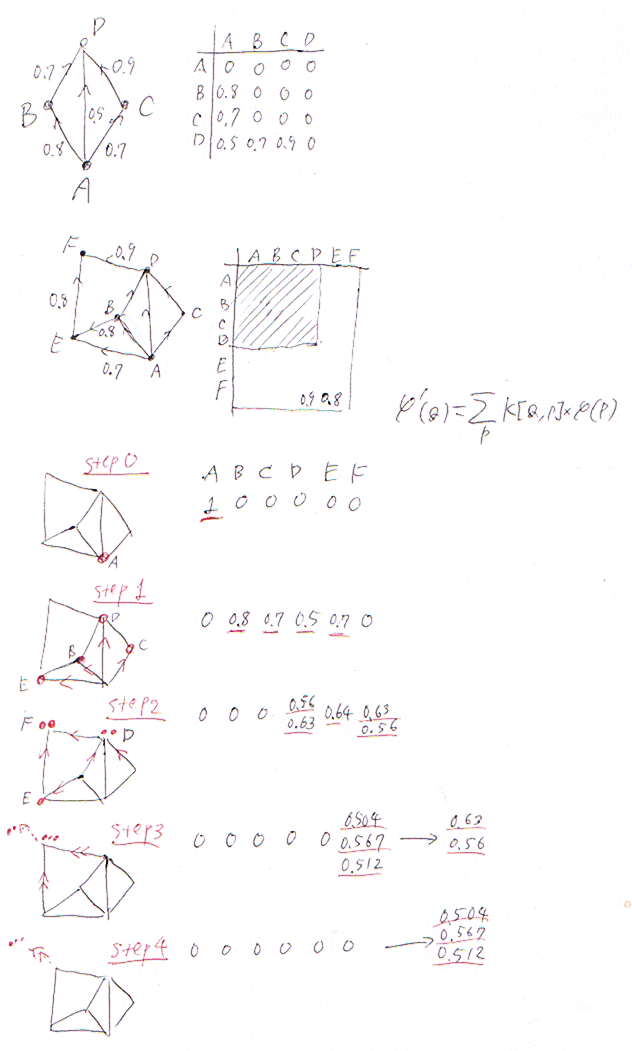 D
0.7 0.9
B 0.5 C
0.8 0.7
A
A B C D
A 0 0 0 0
B 0.8 0 0 0
C 0.7 0 0 0
D 0.5 0.7 0.9 0
F 0.9 D
0.8 B C
E 0.8
0.7 A
A B C D E F
A
B
C
D
E
F
0.9 0.8
φ'(Q)=∑K[Q,P]×φ(P)
P
step 0
A B C D E F
1 0 0 0 0 0
A
step 1
D
B C
E
0 0.8 0.7 0.5 0.7 0
step2
F D
E
0 0 0 0.56 0.64 0.63
0.63 0.56
step3
0 0 0 0 0 0.504 → 0.63
0.567 0.56
0.512
step4
0 0 0 0 0 0 → 0.504
0.567
0.512